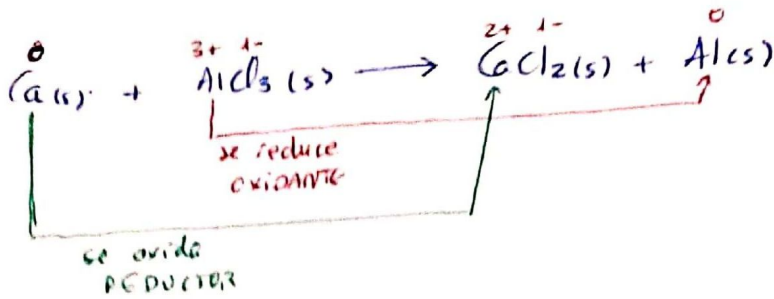 0 3+ 1- 2+ 1- 0
Ca(s) + AlCl3 (s) → CaCl2(s) + Al(s)
se reduce
OXIDANTE
se oxida
REDUCTOR